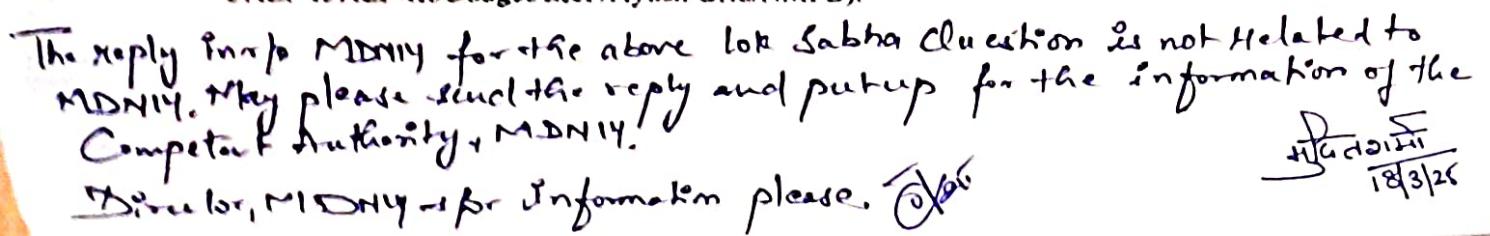 The reply in r/o MDNIY for the above lok Sabha Question is not related to
MDNIY. May please send the reply and put up for the information of the
Competent Authority, MDNIY.
Director, MDNIY - for Information please.
18/3/25